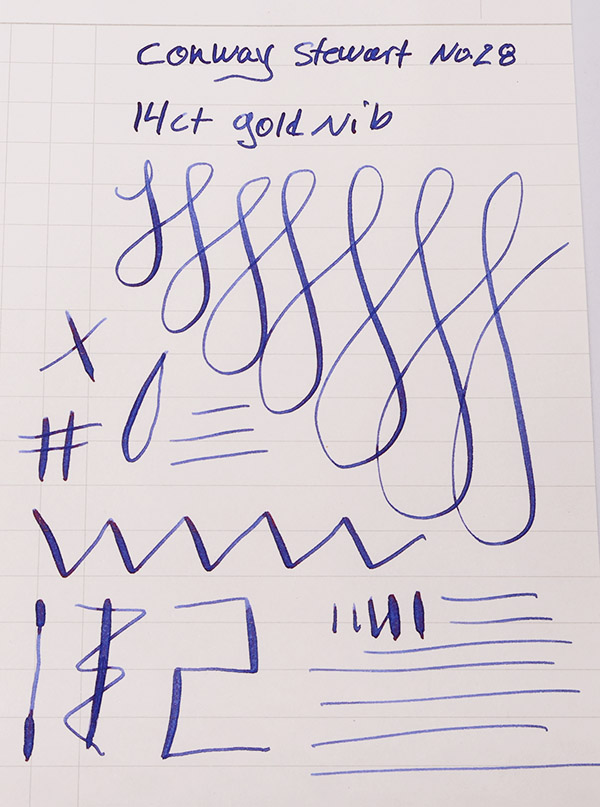 Conway Stewart No.28
14ct gold Nib
X
#